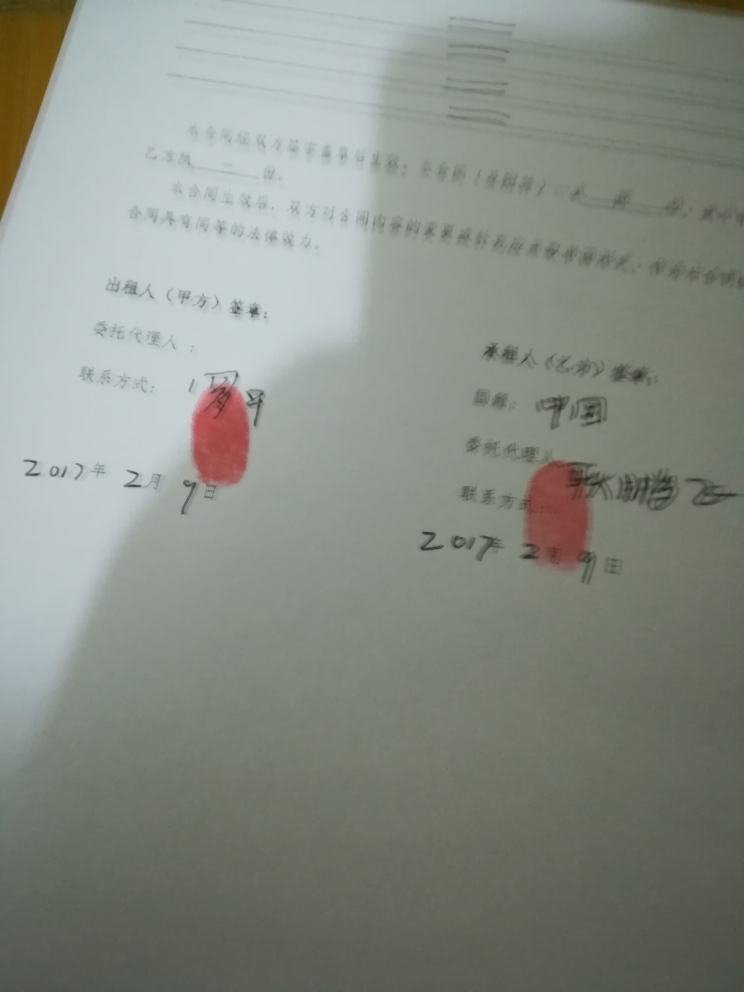 本合同经双方签字盖章后生效；本合同（及附件）一式 两 份；其中甲
乙方执 二 份。
本合同生效后，双方对合同内容的变更或补充应采取书面形式，作为本合同的
合同具有同等的法律效力。
出租人（甲方）签章：
委托代理人：
联系方式：
2017年 2月 9日
承租人（乙方）签章：
国籍：中国
委托代理人
联系方式：
2017年 2月 9日